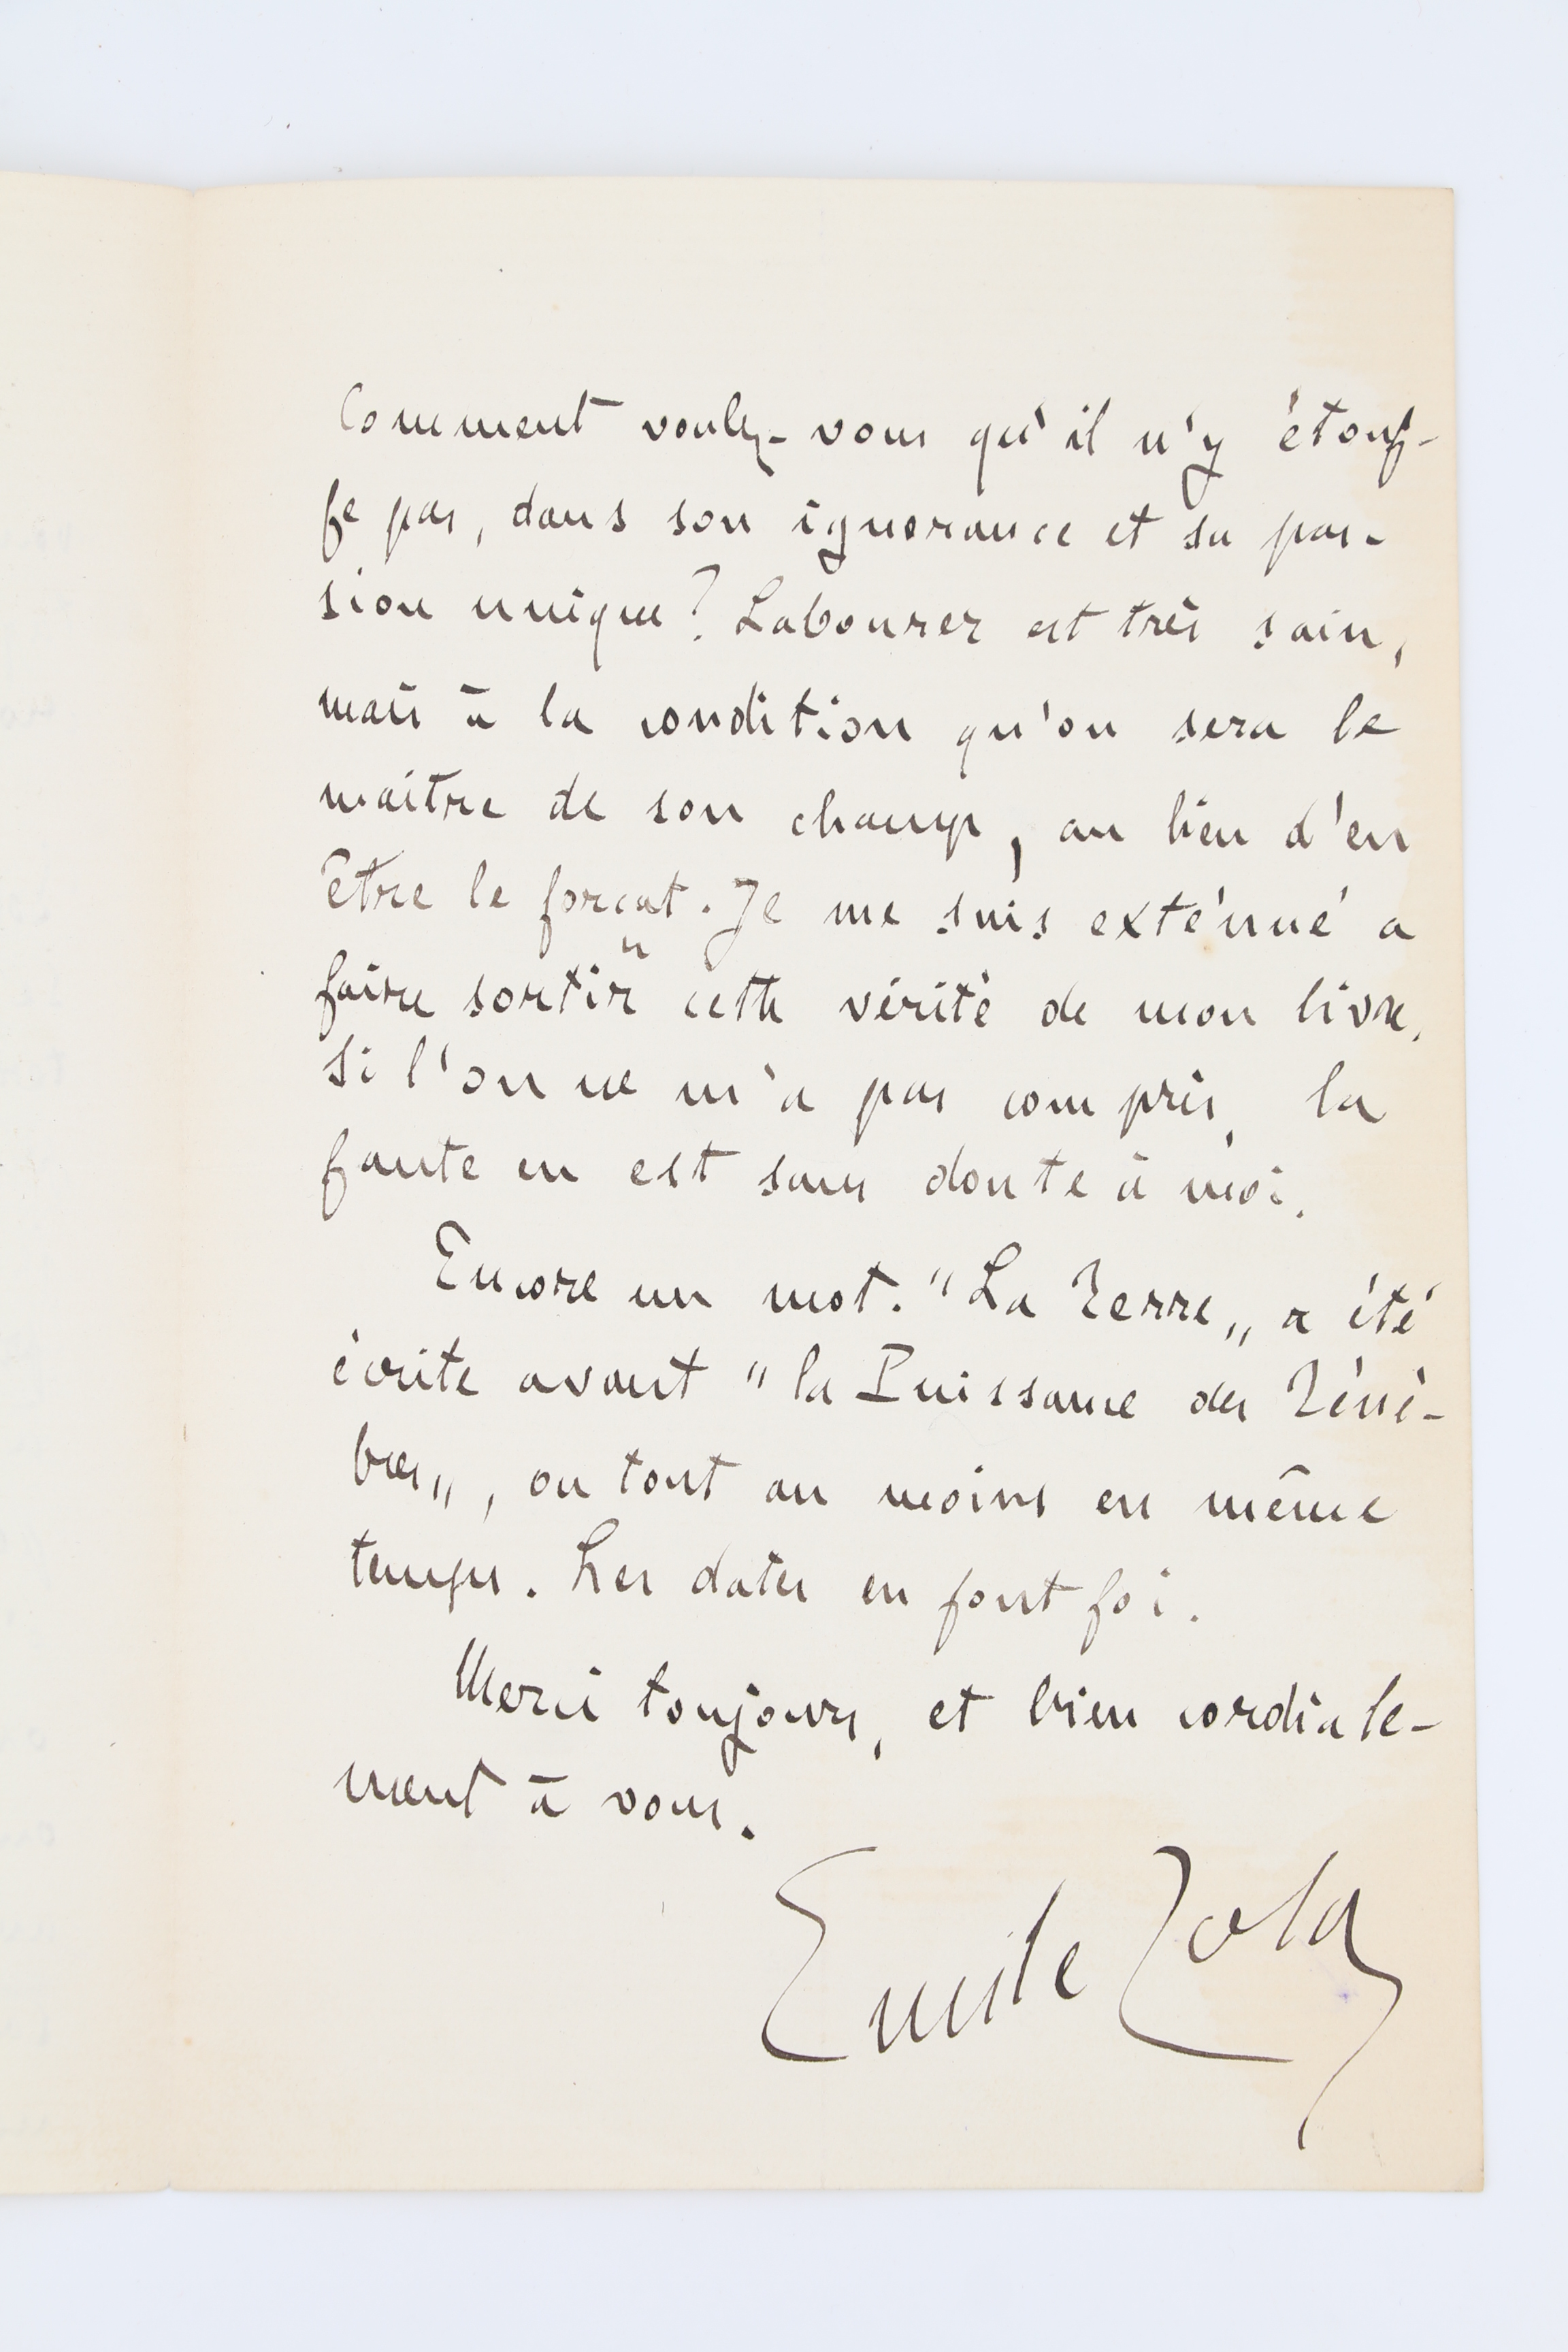 Comment voulez-vous qu'il n'y étouf-
fe pas, dans son ignorance et sa pas-
sion unique? Labourer est très sain,
mais à la condition qu'on sera le
maître de son champ, au lieu d'en
être le forçat. Je me suis exténué a
faire sortir cette vérité de mon livre.
Si l'on ne m'a pas compris, la
faute en est sans doute à moi.
Encore un mot. "La Terre„ a été
écrite avant "la Puissance des Ténè-
bres„, ou tout au moins en même
temps. Les dates en font foi.
Merci toujours, et bien cordiale-
ment à vous.
Emile Zola